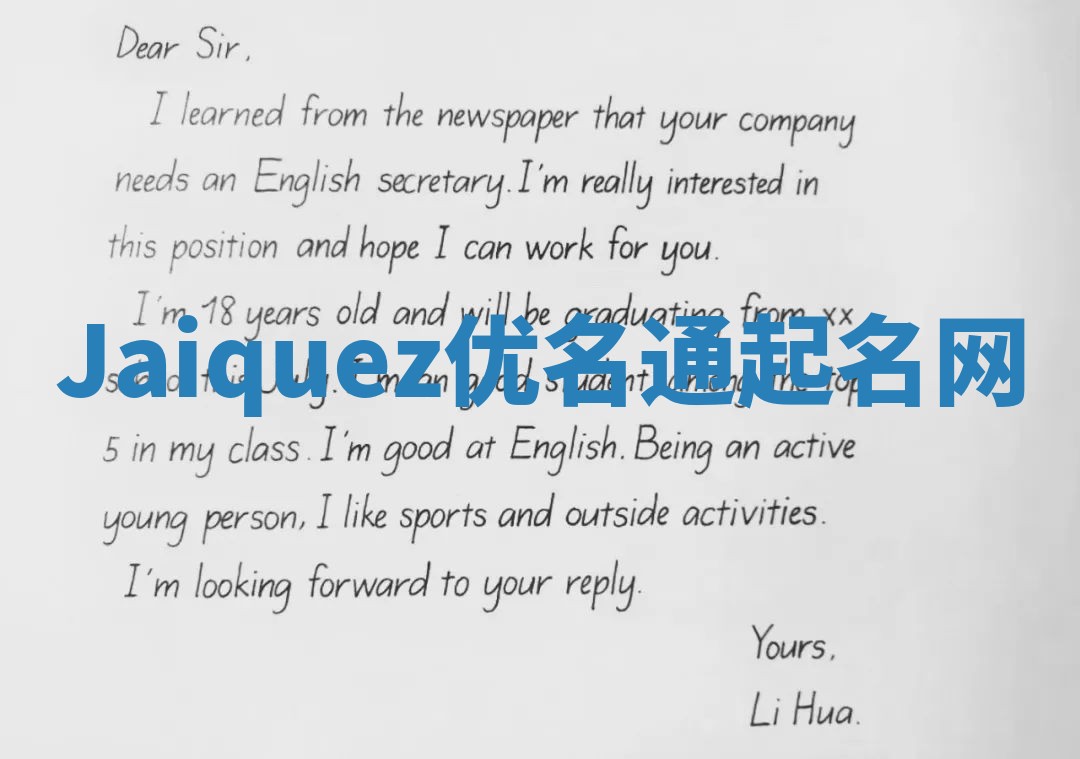 Dear Sir,
I learned from the newspaper that your company
needs an English secretary. I'm really interested in
this position and hope I can work for you.
I'm 18 years old and will be graduating from xx
Jaiquez优名通起名网
school this July. I'm an good student among the top
5 in my class. I'm good at English. Being an active
young person, I like sports and outside activities.
I'm looking forward to your reply.
Yours,
Li Hua.